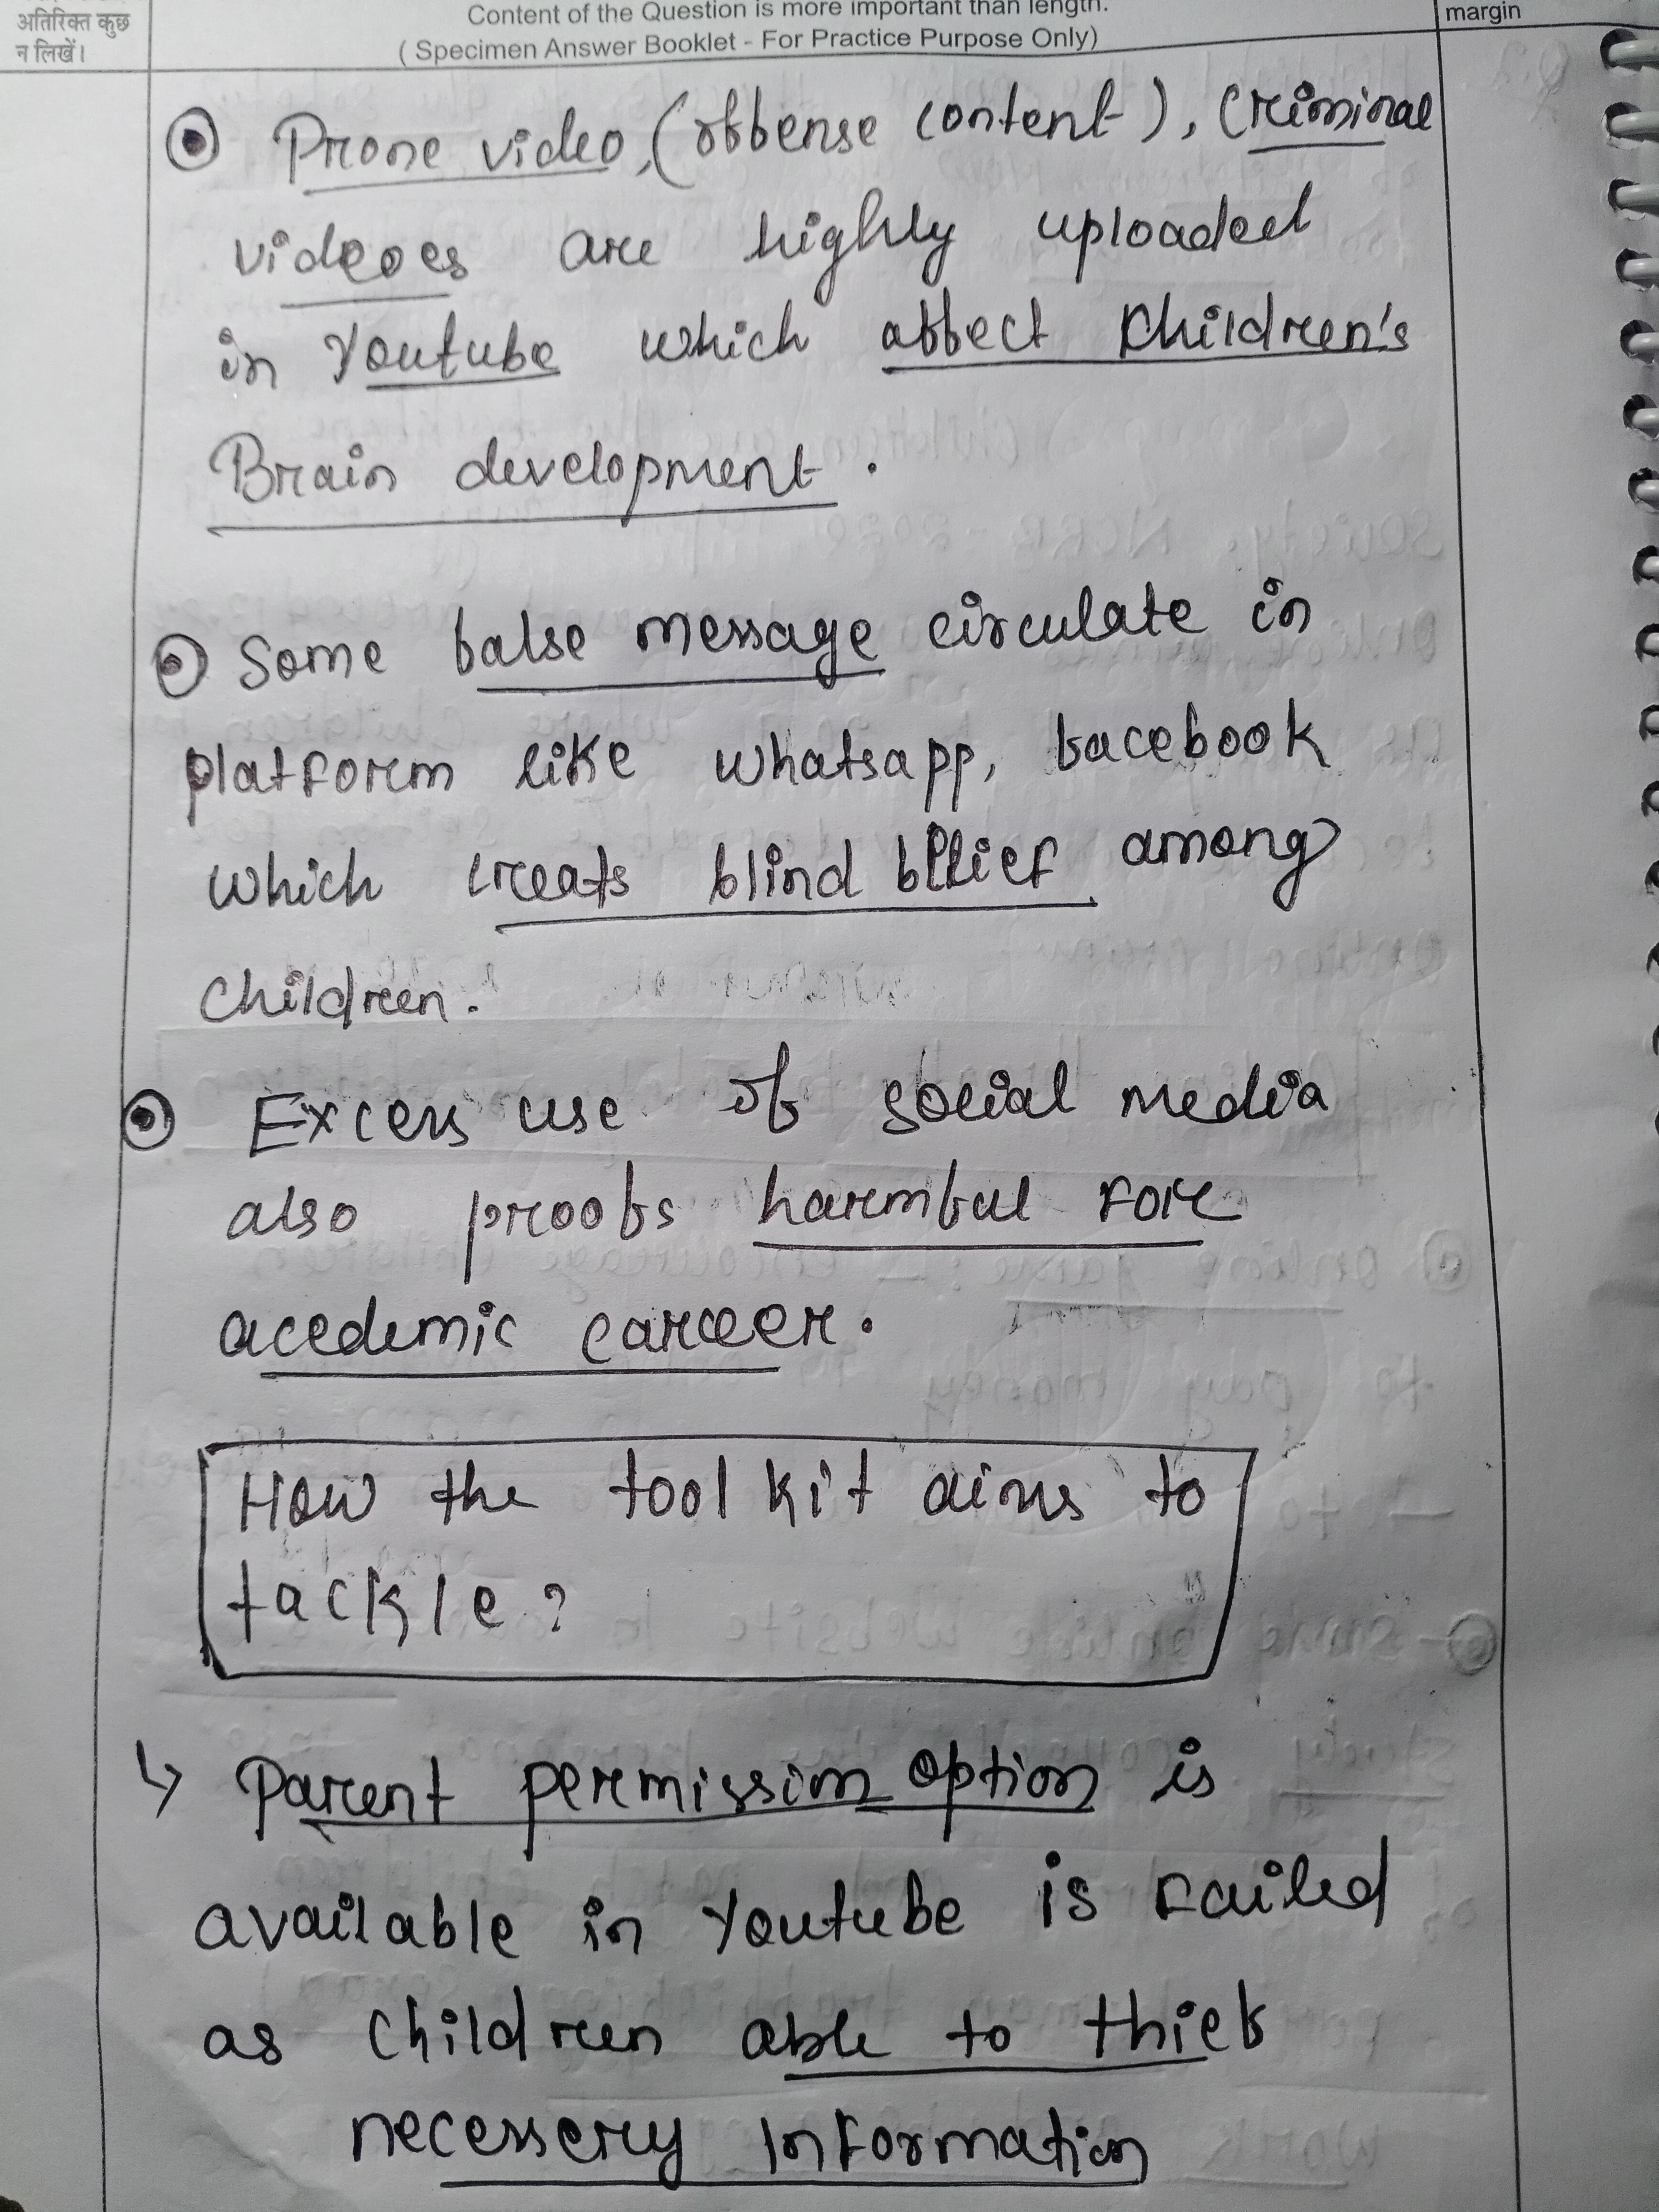 अतिरिक्त कुछ
न लिखें।
Content of the Question is more important than length.
( Specimen Answer Booklet - For Practice Purpose Only)
margin
Prone video, (offense content), Criminal
videoes are highly uploaded
in Youtube which affect Children's
Brain development.
Some false message circulate in
platform like whatsapp, facebook
which creats blind blief among
children.
Excess use of social media
also proofs harmful for
acedemic career.
How the toolkit aims to
tackle?
↳ Parent permission option is
available in Youtube is failed
as children able to thief
necessery Information